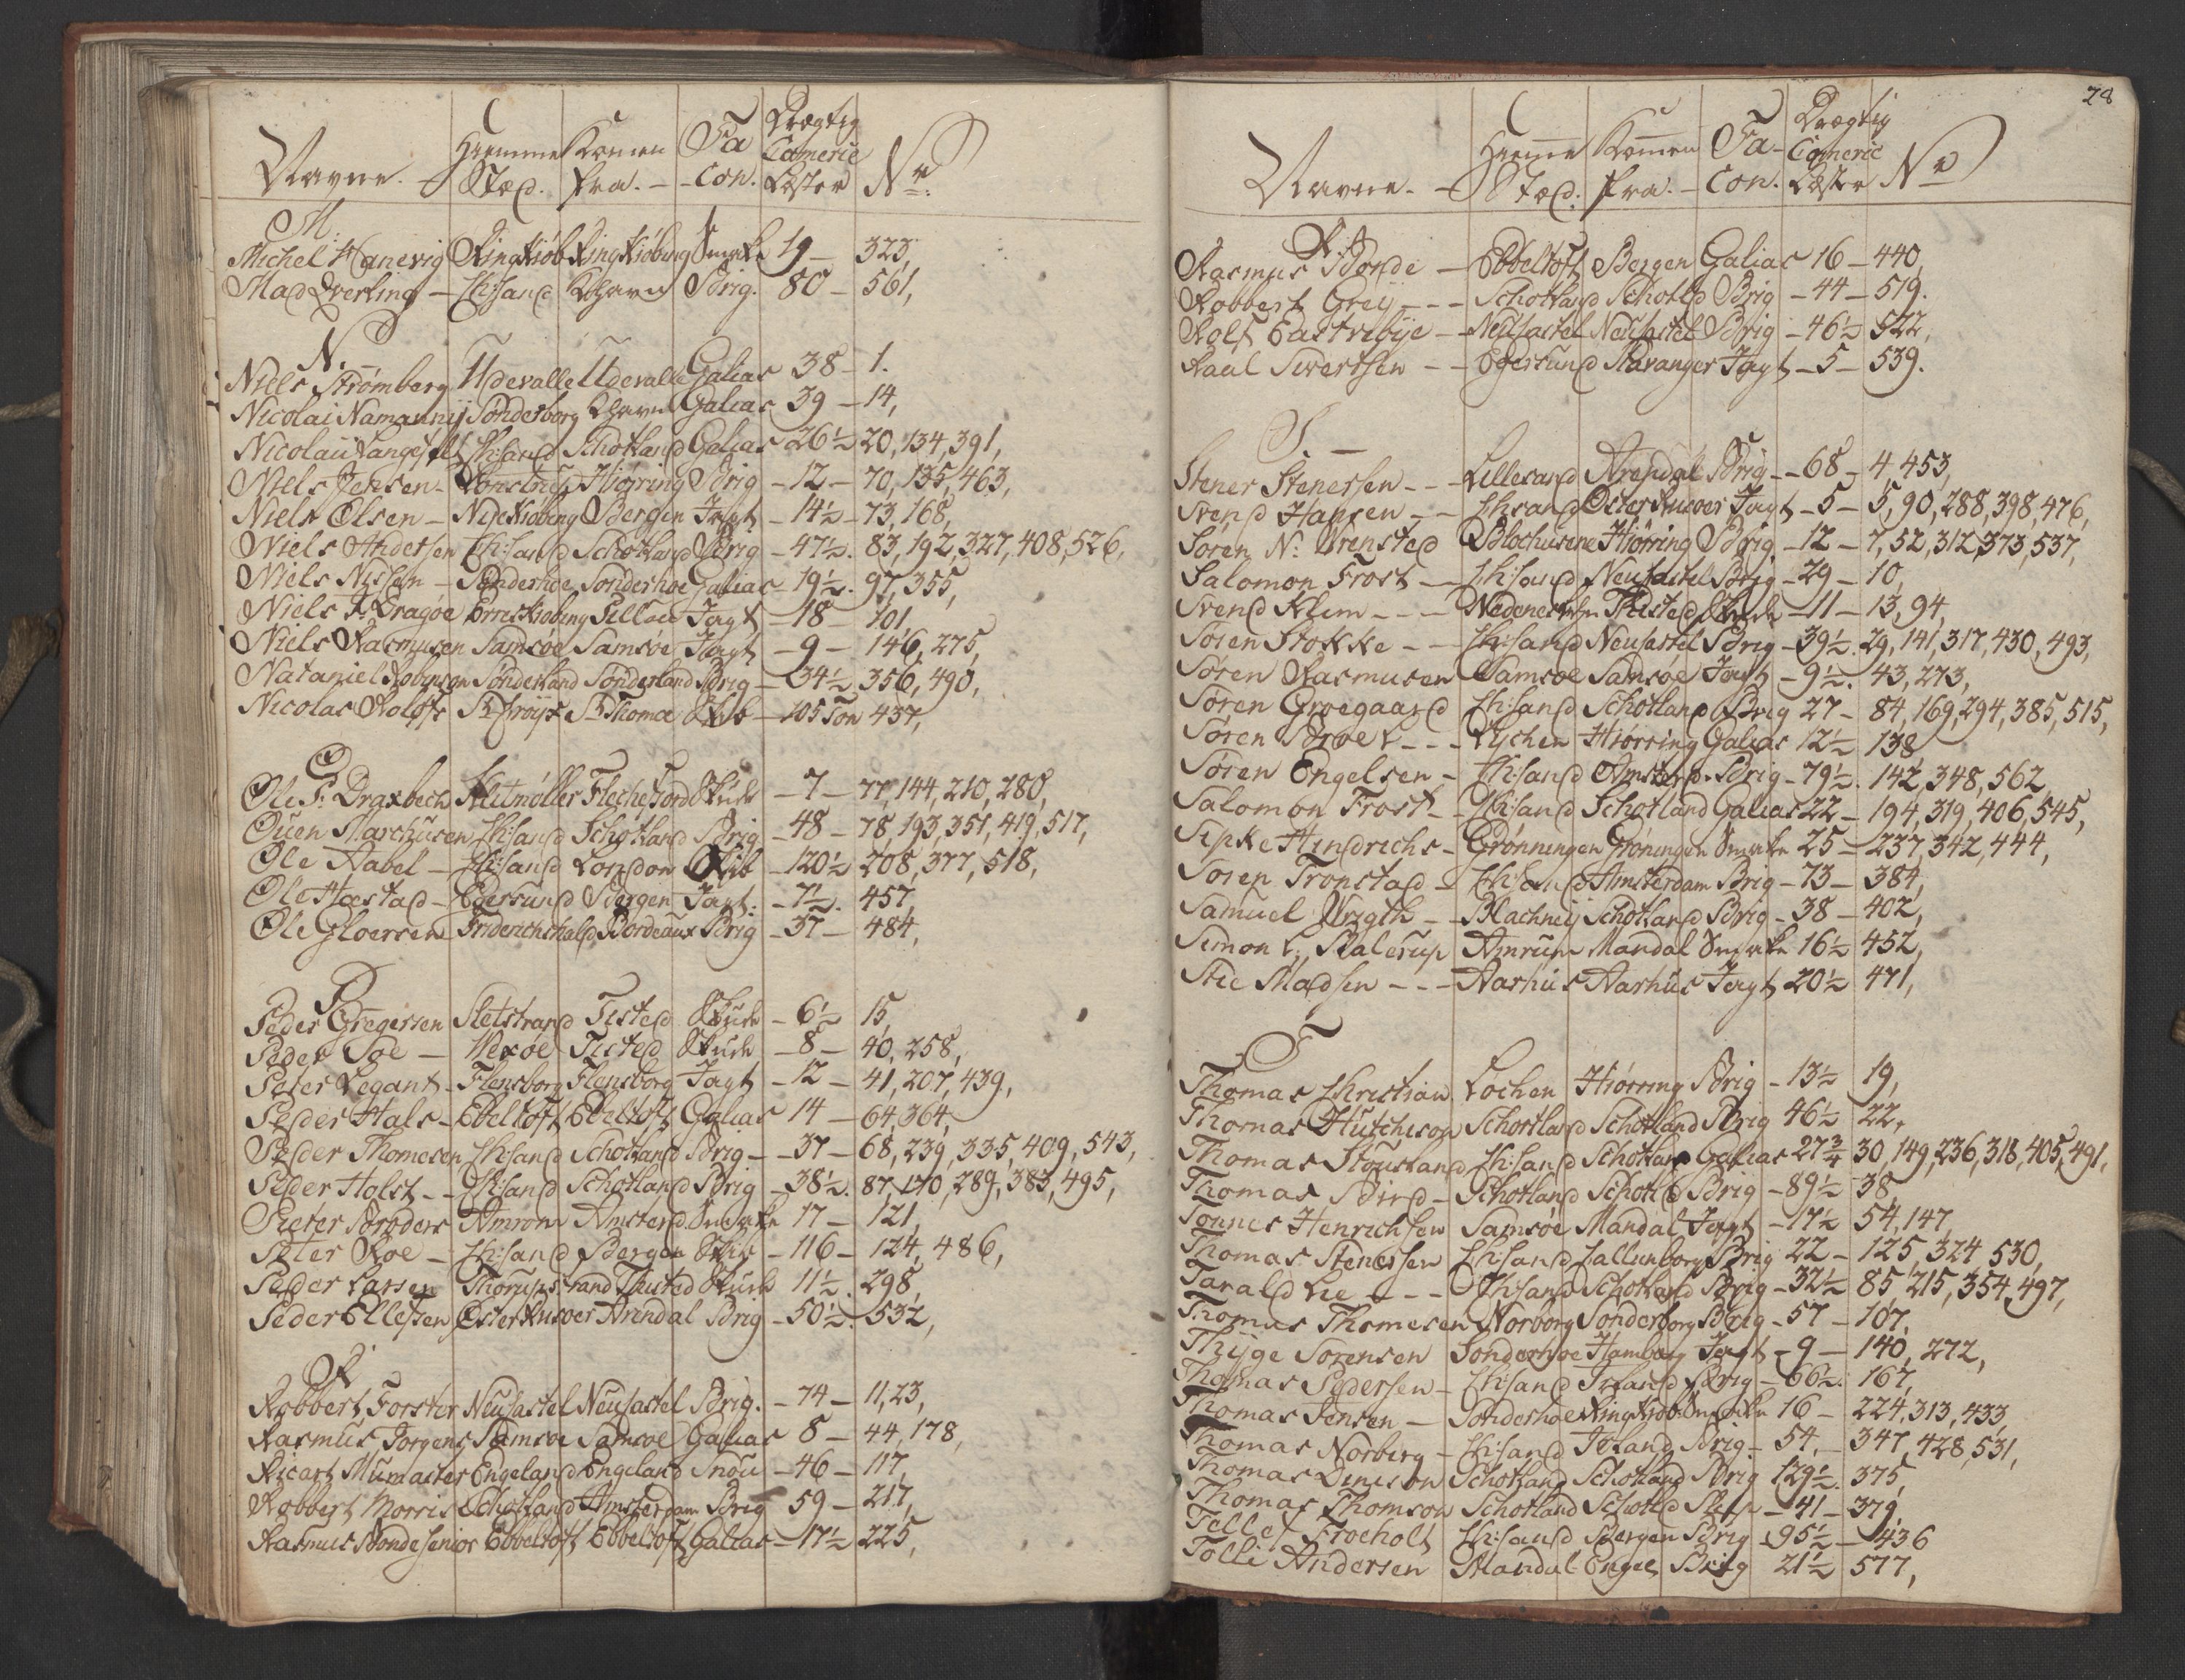 Navne. Hiemme Sted. Komen fra. Fa con. Drægtig Comerie Læster No.
M.
Michel Hanevig Ringkiøb Ringkiøbing Smakke 19 323,
Mads Qverling Ch:sand Khavn Brig. 80 561,
N.
Niels Strømberg Udevalle Udevalle Galias 38 1.
Nicolai Namannij Sonderborg Khavn Galias 39 14,
Nicolai Langefeldt Ch:sand Schotland Galias 26½ 20, 134, 391,
Niels Jensen Lonstrup Hiøring Brig 12 70, 135, 463,
Niels Olsen Niekiobing Bergen Jagt 14½ 73, 168,
Niels Andersen Ch:sand Schotland Brig 47½ 83, 192, 327, 408, 526,
Niels Nissen Sonderhoe Sonderhoe Galias 19½ 97, 355,
Niels J. Dragøe Erreskiobing Pillau Jagt 18 101
Niels Rasmusen Samsøe Samsøe Jagt 9 146, 275,
Nataniel Robinson Sønderland Sonderland Brig 34½ 356, 490,
Nicolas Roloffs St Croyx St Thomæ Skib 105 Ton 437,
O
Ole P: Draxbech Kletmøller Flechefiord Skude 7 77, 144, 210, 280,
Ouen Marchusen Ch:sand Schotland Brig 48 78, 193, 351, 419, 517,
Ole Aabel Ch:sand London Skib 120½ 208, 377, 518,
Ole Hæstad Egersund Bergen Jagt: 7½ 457,
Ole Gloersen Friderichshald Bordeaux Brig 37 484,
P
Peder Gregersen Sletstrand Tisted Skude 6½ 15,
Peder Soe Wexøe Tisted Skude 8 40, 258,
Peter Legant Flensborg Flensborg Jagt 12 41, 207, 439,
Peder Hals Ebeltoft Ebeltoft Galias 14 64, 364,
Peder Thomesen Ch:sand Schotland Brig 37 68, 239, 335, 409, 543,
Peder Holst Ch:sand Schotland Brig 38½ 87, 170, 289, 383, 495,
Pieter Broders Amrom Amsterd Smakke 17 121,
Peter Roe Ch:sand Bergen Skib 116 124, 486,
Peder Larsen Thorupstrand Tisted Skude 11½ 298,
Peder Ellefsen Østerriisoer Arendal Brig 50½ 532,
R
Robbert Forster Neucastel Neucastel Brig. 74 11, 23,
Rasmus Jorgens Samsoe Samsoe Galias 8 44, 178,
Ricart Mumaster Engeland Engeland Snou 46 117,
Robbert Morris Schotland Amsterdam Brig 59 217,
Rasmus Bonde senior Ebbeltoft Ebbeltoft Galias 17½ 225,
28
Navne. Hieme Sted. Komen fra. Fa con. Drægtig Comerie Læster No
R.
Rasmus Bonde Ebbeltoft Bergen Galias 16 440,
Robbert Greij Schotland Schotld Brig 44 519.
Rolf Eastrebije Neucastel Neucastel Brig 46½ 522,
Raal Sivertsen Egersund Stavanger Jagt 5 539.
S
Stener Stenersen Lillesand Arendal Brig 68 4, 453,
Svend Hansen Chsand Osterriisoer Jagt 5 5, 90, 288, 398, 476,
Soren N: Vrensted Blochusene Hiørring Brig 12 7, 52, 312, 373, 537,
Salomon Frost Ch:sand Neucastel Brig 29 10,
Svend Klim Tisted Skude 11 13, 94,
Søren Stokke Ch:sand Neucastel Brig 39½ 29, 141, 317, 430, 493,
Søren Rasmusen Samsøe Samsøe Jagt 9½ 43, 273,
Søren Groegaard Ch:sand Schotland Brig 27 84, 169, 294, 385, 515,
Søren Broel Lychen Hiørring Galias 12½ 138
Søren Engelsen Ch:sand Amsterd. Brig 79½ 142, 348, 562
Salomon Frost Ch:sand Schotland Galias 22 194, 319, 406, 545,
Sipke Hindrichs Grønningen Grøningen Smakke 25 237, 342, 444,
Soren Tronstad Ch:sand Amsterdam Brig 73 384,
Samuel Wrigth Blachneij Schotland Brig 38 402,
Simon L: Stalerup Amrum Mandal Smakke 16½ 452,
Stie Madsen Aarhus Aarhus Jagt 20½ 471,
T
Thomas Christian Lochen Hiørring Brig 13½ 19,
Thomas Hutchison Schortland Schotland Brig 46½ 22,
Thomas Stousland Ch:sand Schotland Galias 27¾ 30, 149, 236, 318, 405, 491,
Thomas Bird Schotland Schotld Brig 89½ 38,
Tonnes Henrichsen Samsøe Mandal Jagt 17½ 54, 147,
Thomas Stenersen Ch:sand Callunborg Brig 22 125, 324, 530,
Tarald Lie Ch:sand Schotland Brig 32½ 85, 215, 354, 497,
Thomas Thomesen Norborg Sonderborg Brig 57 107,
Thijge Sorensen Sonderhoe Hamborg Jagt 9 140, 272,
Thomas Pedersen Ch:sand Irland Brig 66½ 167,
Thomas Jensen Sonderhoe Ringkiob: Smakke 16 224, 313, 433,
Thomas Norberg Ch:sand Irland Brig 54 347, 428, 531,
Thomas Denison Schotland Schotland Brig 129½ 375,
Thomas Thomson Schotland Schotld Slup 41 379,
Tellef Froeholt Ch:sand Bergen Brig 95½ 436
Tolle Andersen Mandal Engel Brig 21½ 577,